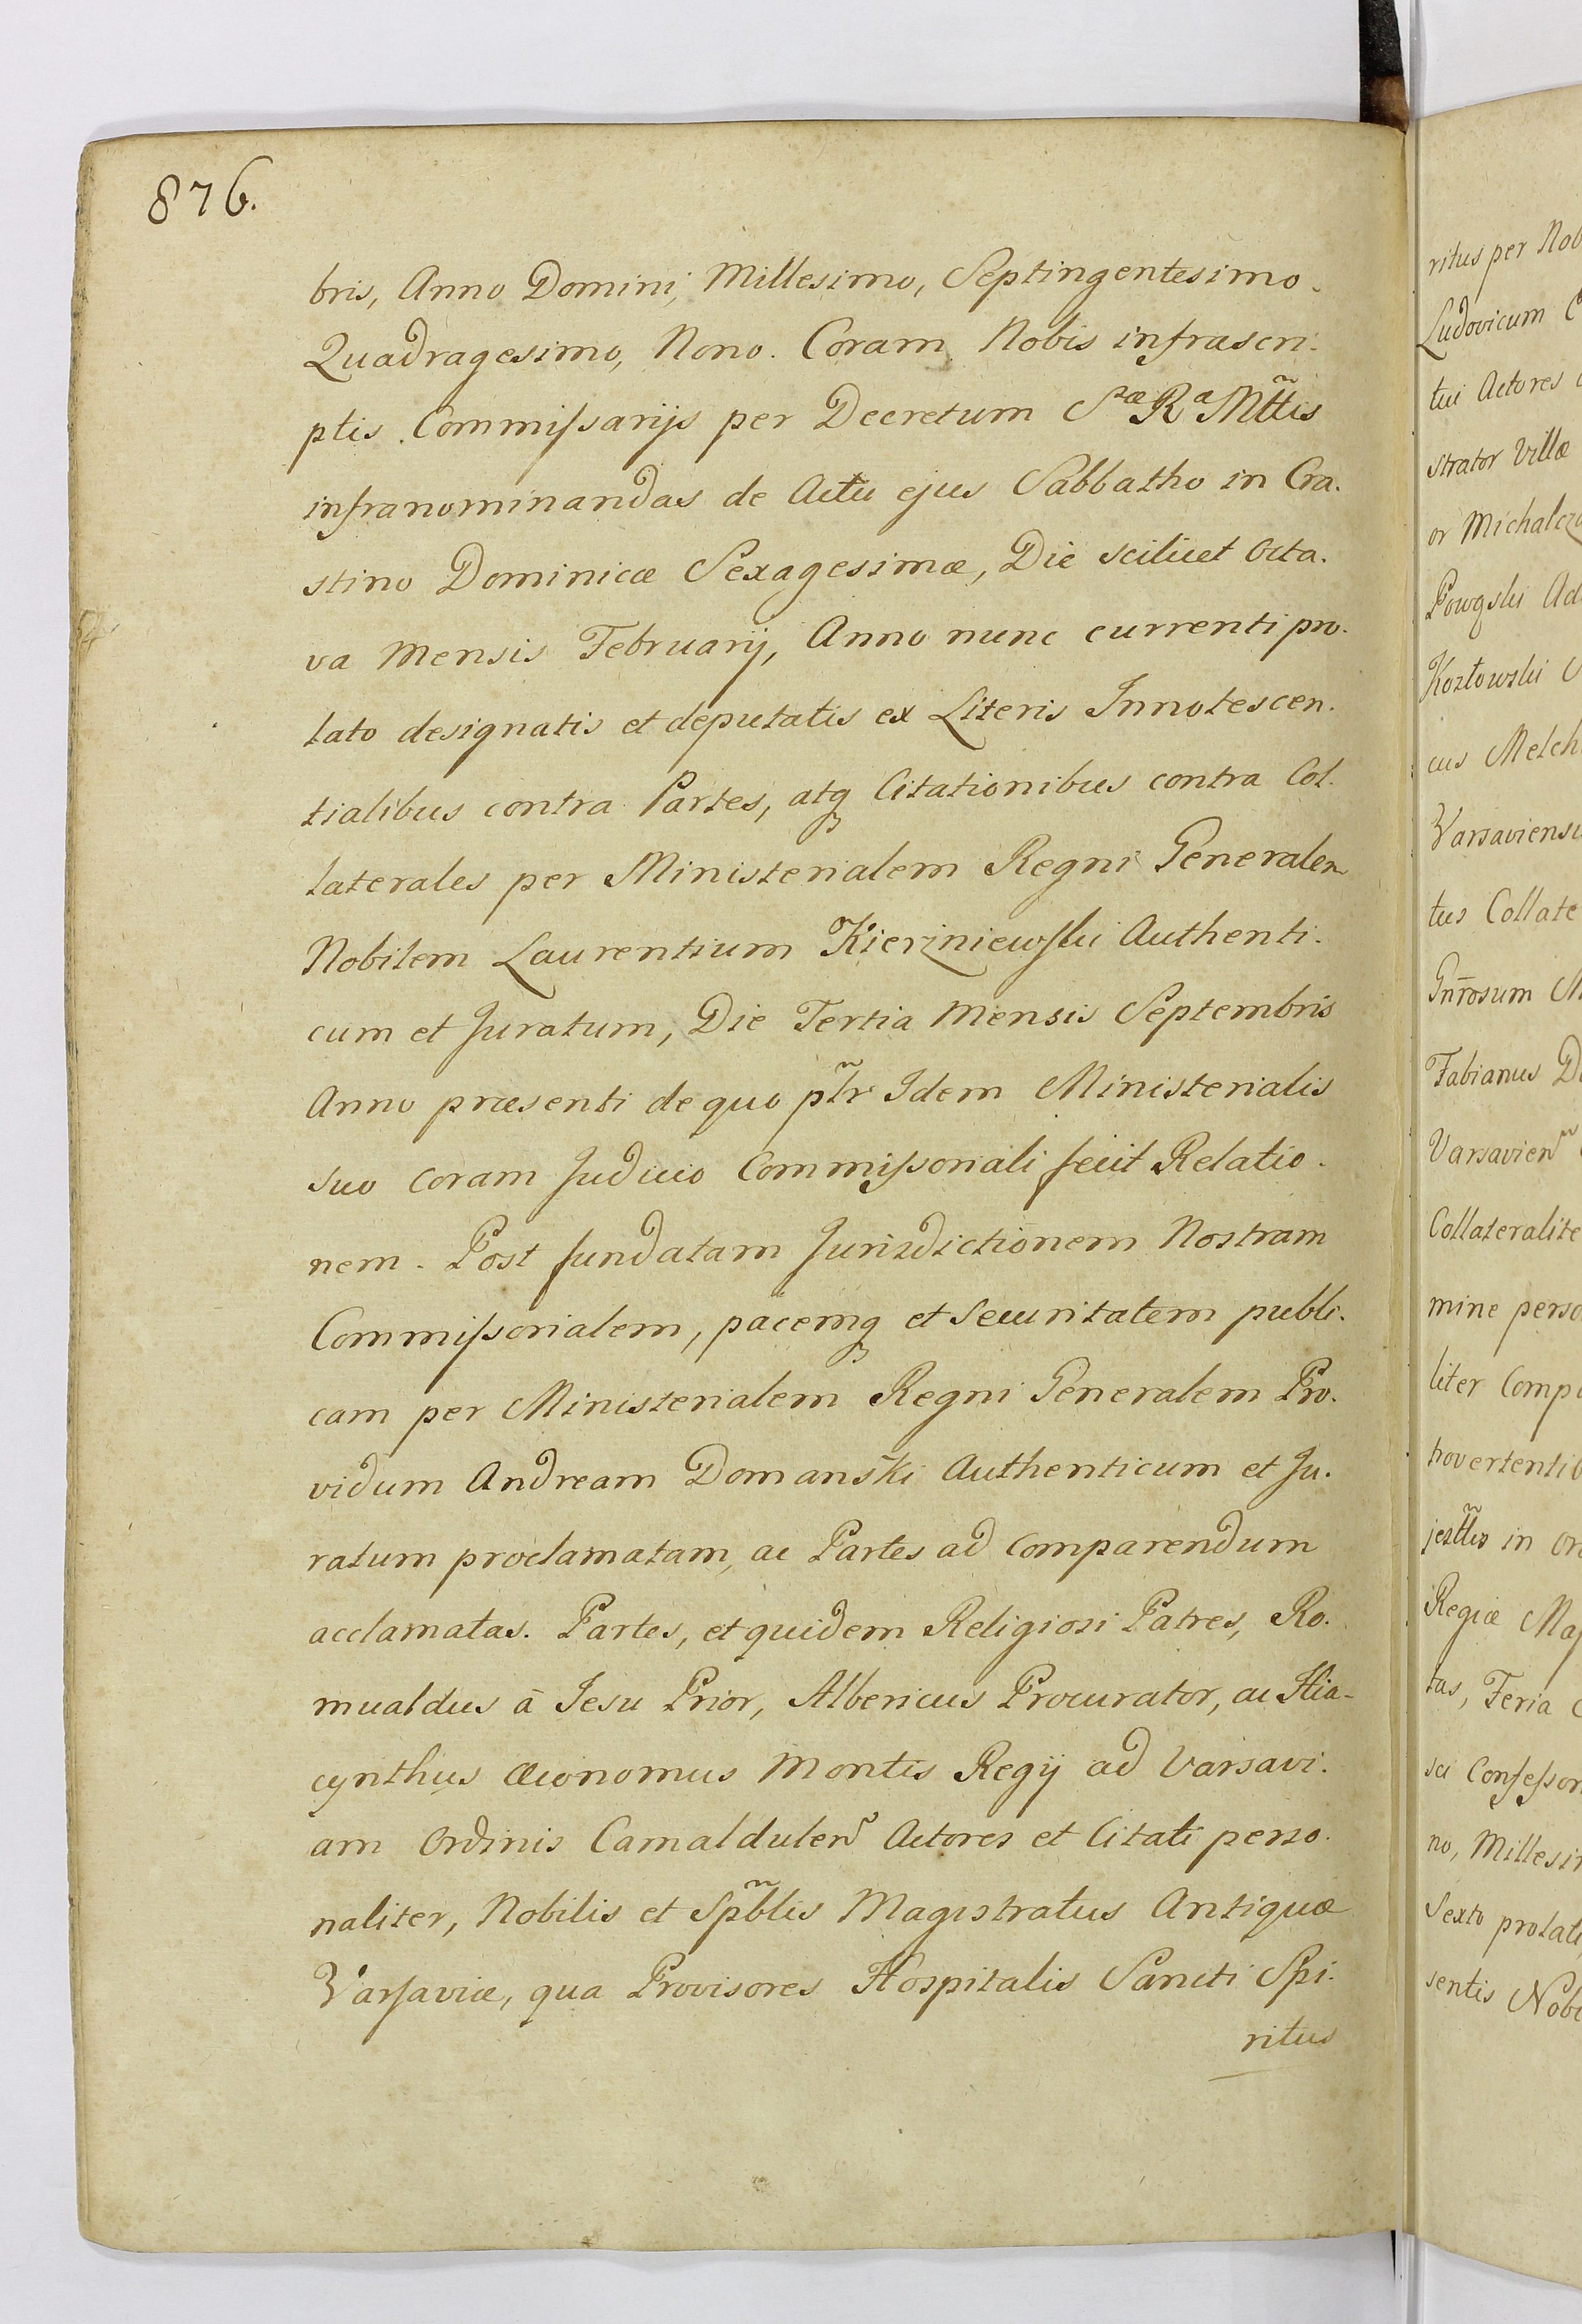 876.
bris, Anno Domini, Millesimo, Septingentesimo.
Quadragesimo, Nono. Coram Nobis infrascri.
ptis Commissarijs per Decretum Sæ Ra Mttis
infranominandas de Actu ejus Sabbatho in Cra.
stino Dominicæ Sexagesimæ, Die scilicet Octa.
va Mensis Februarij, Anno nunc currenti pro.
lato designatis et deputatis ex Literis Innotescen.
tialibus contra Partes, atq Citationibus contra Col.
laterales per Ministerialem Regni Generalem
Nobilem Laurentium Kierzniewski Authenti.
cum et Juratum, Die Tertia Mensis Septembris
Anno præsenti de quo ptr Idem Ministerialis
suo coram Judicio Commissoriali fecit Relatio.
nem. Post fundatam Jurisdictionem Nostram
Commissorialem, pacemq et Securitatem publi.
cam per Ministerialem Regni Generalem Pro.
vidum Andream Domański Authenticum et Ju.
ratum proclamatam, ac Partes ad comparendum
acclamatas. Partes, et quidem Religiosi Patres, Ro.
mualdus à Jesu Prior, Albericus Procurator, ac Hia-
cynthus Œconomus Montis Regij ad Varsavi.
am Ordinis Camaldulen Actores et Citati perso.
naliter, Nobilis et Spblis Magistratus Antiquæ
Varsaviæ, qua Provisores Hospitalis Sancti Spi.
ritus
ritus per Nob
Ludovicum
tui Actores
strator Villæ
or Michalcz
Powqski Ad
Kozłowski
cus Melch
Varsaviensi
tus Collate
Gnrosum
Fabianus D
Varsavien
Collateralite
mine perso
liter Comp
hovertentib
jesttis in or
Regiæ Maj
tas, Feria
sci Confessor
no, Millesi
Sexto prolati
sentis Nobi